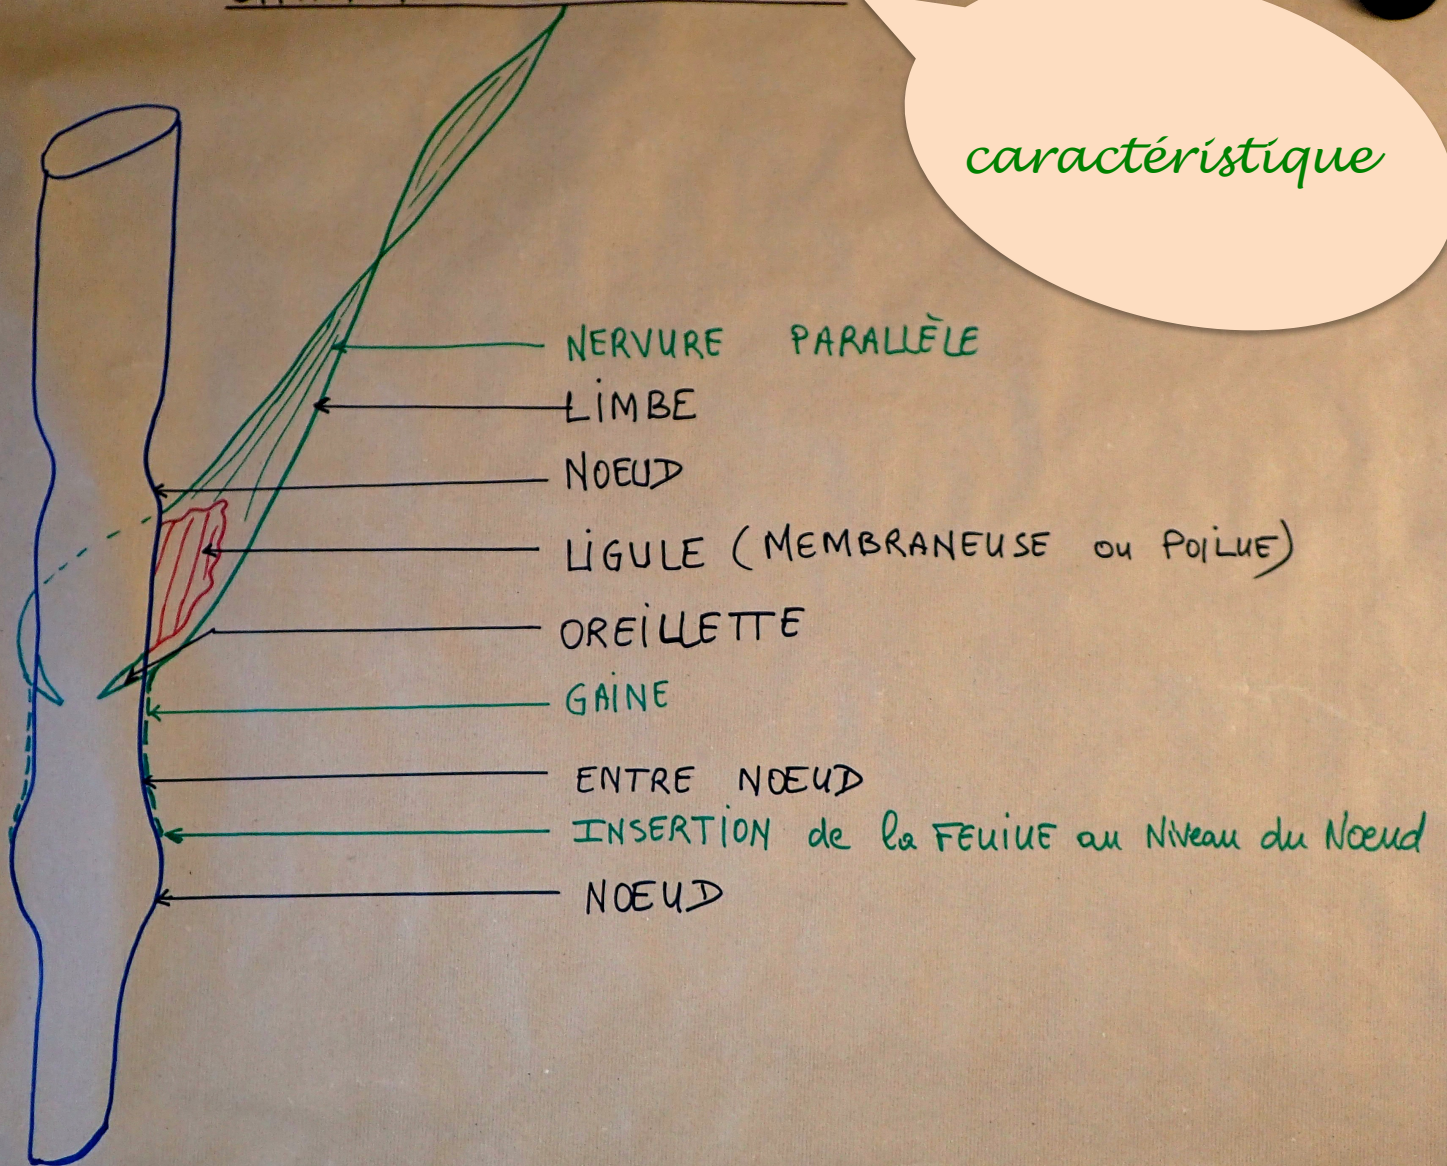 caractéristique
NERVURE PARALLÈLE
LIMBE
NOEUD
LIGULE (MEMBRANEUSE ou POILUE)
OREILLETTE
GAINE
ENTRE NOEUD
INSERTION de la FEUILLE au Niveau du Noeud
NOEUD